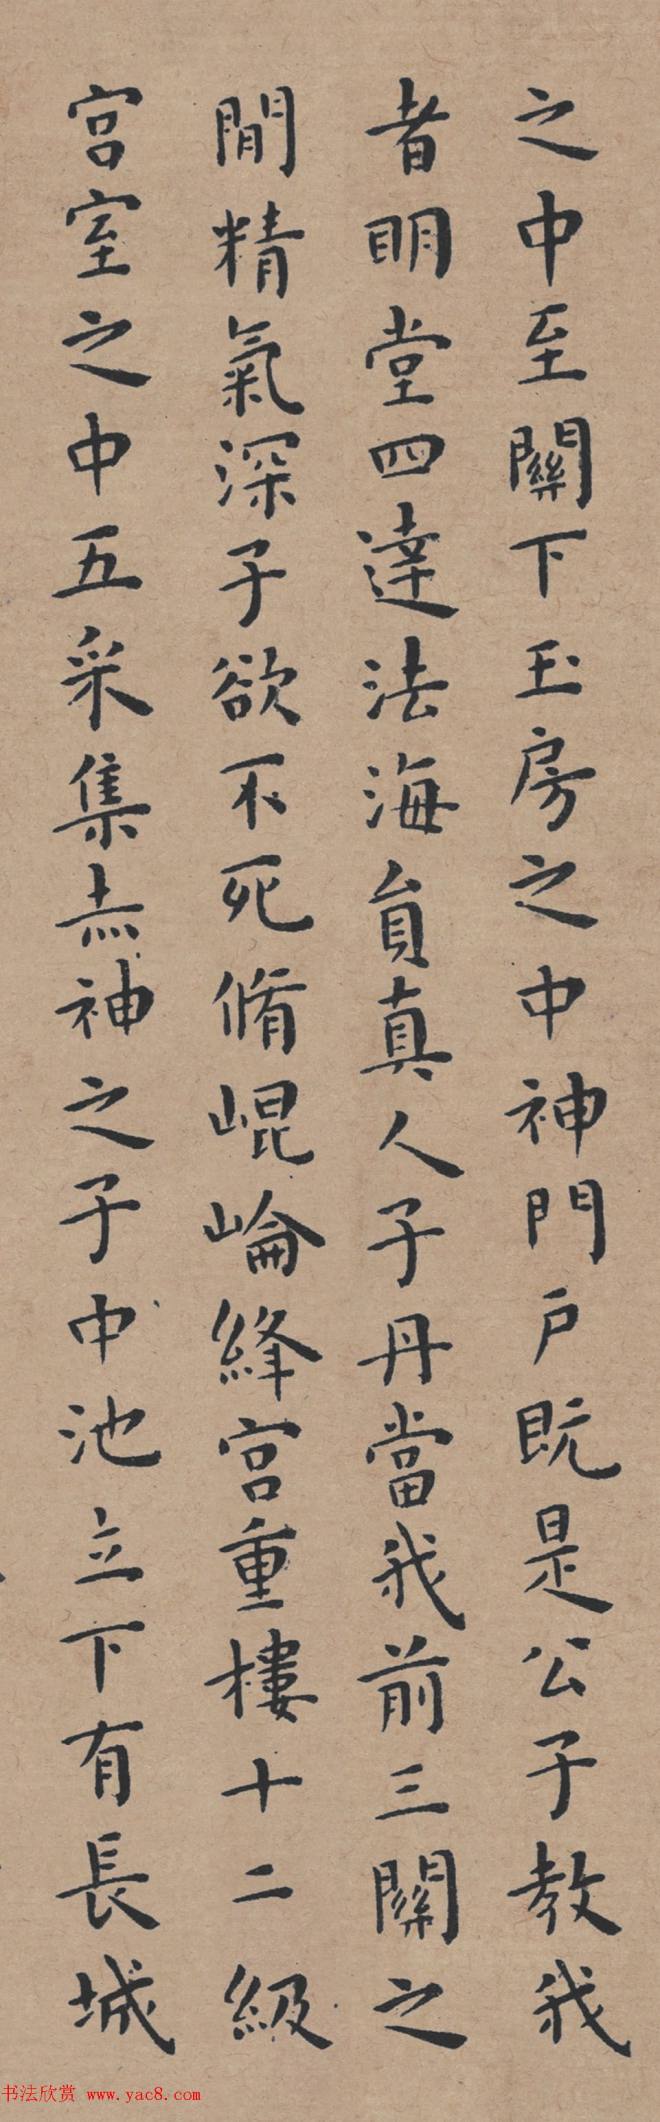 之中至關下玉房之中神門户既是公子教我
者明堂四達法海員真人子丹當我前三關之
間精氣深子欲不死脩崐崘絳宮重樓十二級
宮室之中五采集赤神之子中池立下有長城
书法欣赏 www.yac8.com